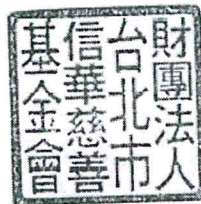 財團法人
台北市
信華慈善
基金會